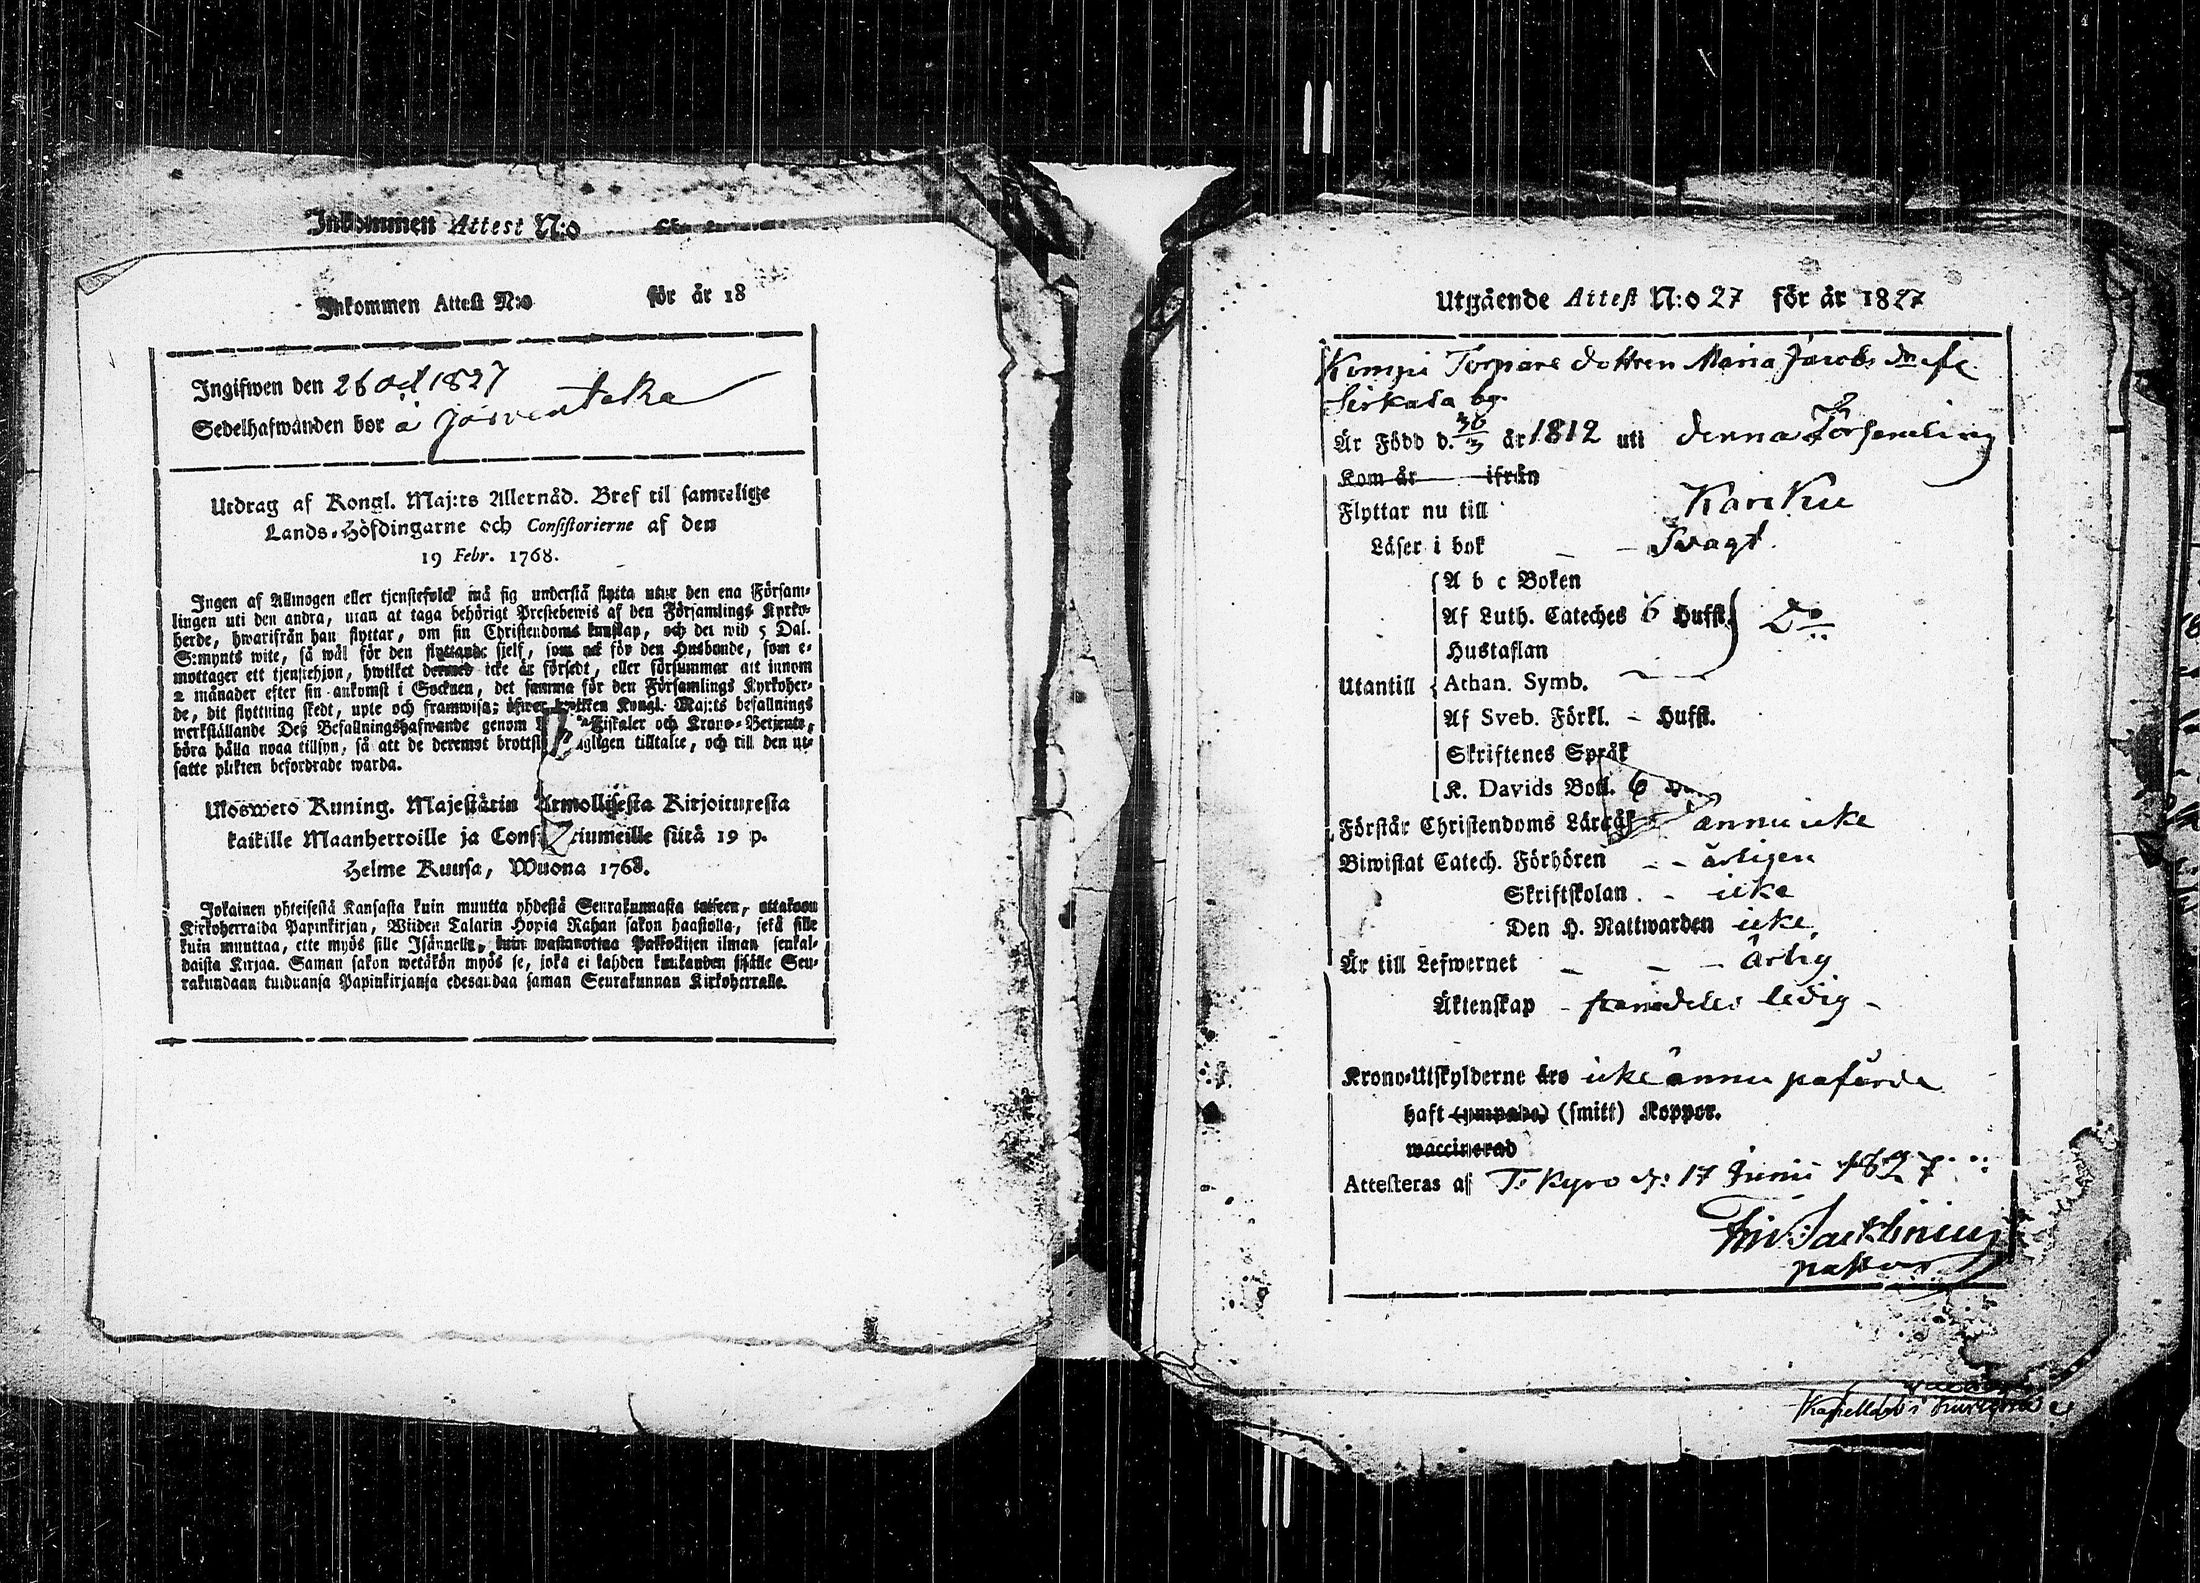 Inkommen Attest N:o
Inkommen Attest N:o för år 18
Ingifwen den 26 oct 1827
Sedelhafwanden bor å
Utdrag af Kongl. Maj:ts Allernåd. Bref til samtelige
Lands-Höfdingarne och Consistorierne af den
19 Febr. 1768.
Ingen af Allmogen eller tjenstefolck må sig understå flytta utur den ena Försam-
lingen uti den andra, utan at taga behörigt Prestebewis af den Församlings Kyrko-
herde, hwarifrån han flyttar, om sin Christendoms kunskap, och det wid 5 Dal.
S:mynts wite, så wäl för den flyttande sielf, som ock för den Husbonde, som e-
mottager ett tjenstehjon, hwilket dermed icke är försedt, eller försummar att innom
2 månader efter sin ankomst i Socknen, det samma för den Församlings Kyrkoher-
de, dit flyttning skedt, upte och framwisa; öfwer hwilken Kongl. Maj:ts befallnings
werkställande Deß Befallningshafwande genom Fiskaler och Krono-Betjente,
böra hålla noga tillsyn, så att de deremot brottsl agligen tilltalte, och till den ut-
satte plikten befordrade warda.
Ulosweto Kuning. Majestätin Armollisesta Kirjoituxesta
kaikille Maanherroille ja Cons riumeille siitä 19 p.
Helme Kuusa, Wuona 1768.
Jokainen yhteisestä Kansasta kuin muutta yhdestä Seurakunnasta toiseen, ottakoon
Kirkoherralda Papinkirjan, Wiiden Talarin Hopia Rahan sakon haastolla, sekä sille
kuin muuttaa, ette myös sille Isännelle, kuin wastanottaa Palkollisen ilman senkal-
daista Kirjaa. Saman sakon wetäkön myös se, joka ei kahden kuukauden sisälle Seu-
rakundaan tulduansa Papinkirjansa edesandaa saman Seurakunnan Kirkoherralle.
Utgående Attest N:o 27 för år 1827
Kempi Torpare dottren Maria Jacobs
Sirkala by.
Är Född d. 30/3 år 1812 uti denna Församling
Kom år ifrån
Flyttar nu till Karkku
Läser i bok - - Svagt.
A b c Boken
Af Luth. Cateches 6 Hufst. Do
Hustaflan
Utantill Athan. Symb.
Af Sveb. Förkl. - Hufst.
Skriftenes Språk
K. Davids Bott. 6
Förstår Christendoms Läran annu icke
Biwistat Catech. Förhören - - årligen
Skriftskolan - icke
Den H. Nattwarden icke
Är till Lefwernet - - - Ärlig
Äktenskap - ledig -
Krono-Utskylderne äro icke ännu påförda
haft (ympade) (smitt) Koppor.
waccinerad
Attesteras af T. Kyro d: 17 Junii 1827
pastor